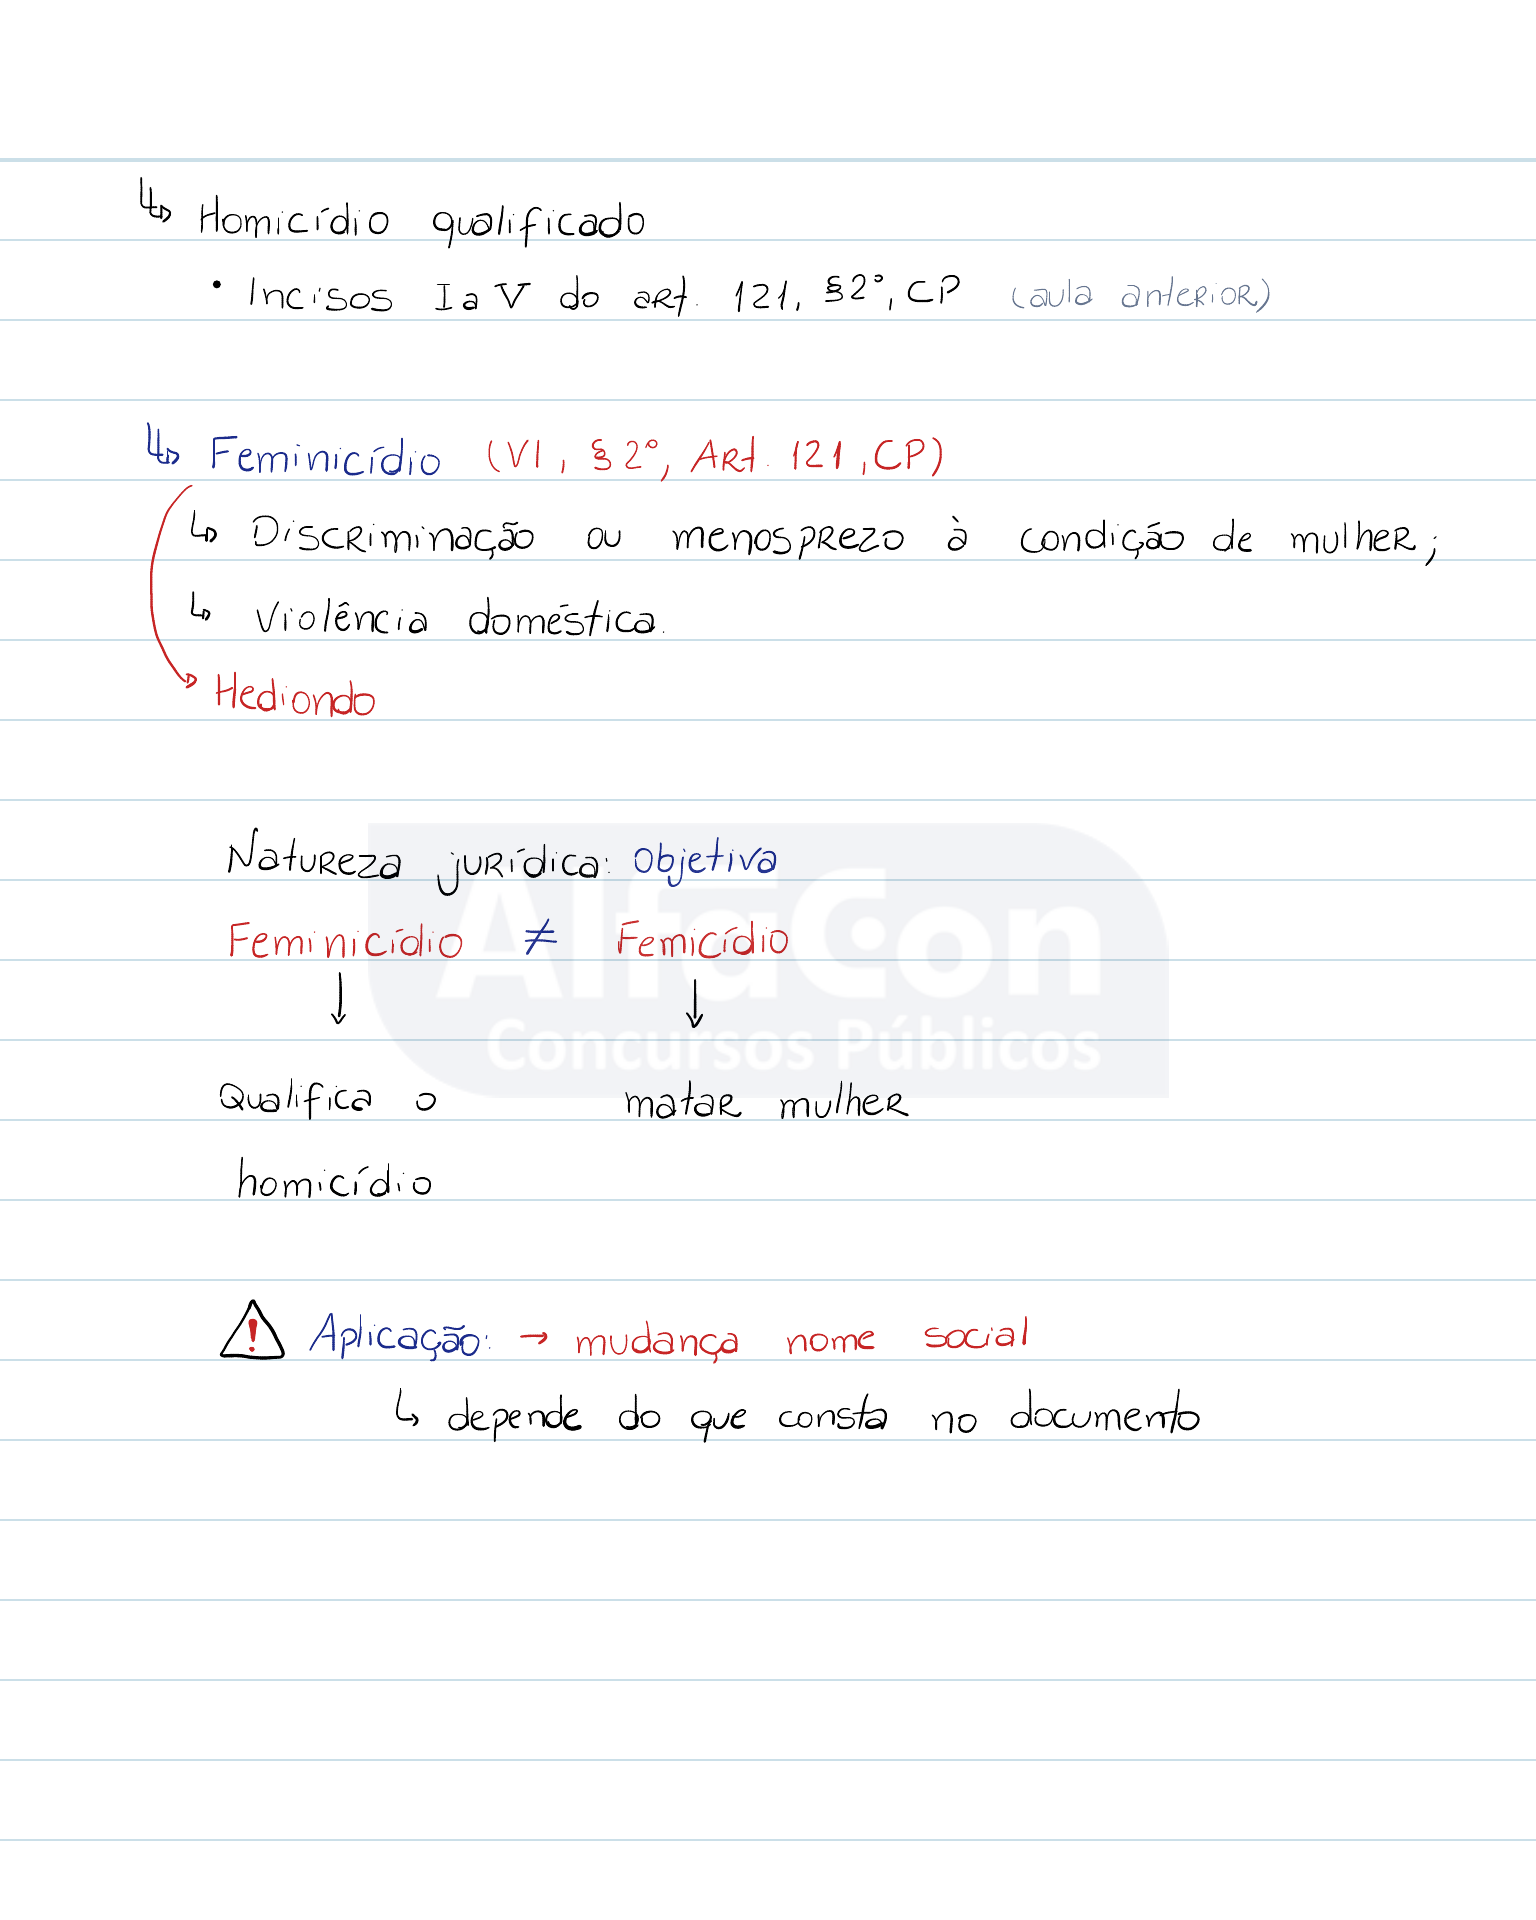 ↳ Homicídio qualificado
• Incisos I a V do art. 121, §2°, CP (aula anterior)
↳ Feminicídio (VI, §2°, Art. 121, CP)
↳ Discriminação ou menosprezo à condição de mulher;
↳ Violência doméstica.
Hediondo
Natureza jurídica: Objetiva
Feminicídio ≠ Femicídio
↓ ↓
AlfaCon
Concursos Públicos
Qualifica o matar mulher
homicídio
! Aplicação: → mudança nome social
↳ depende do que consta no documento